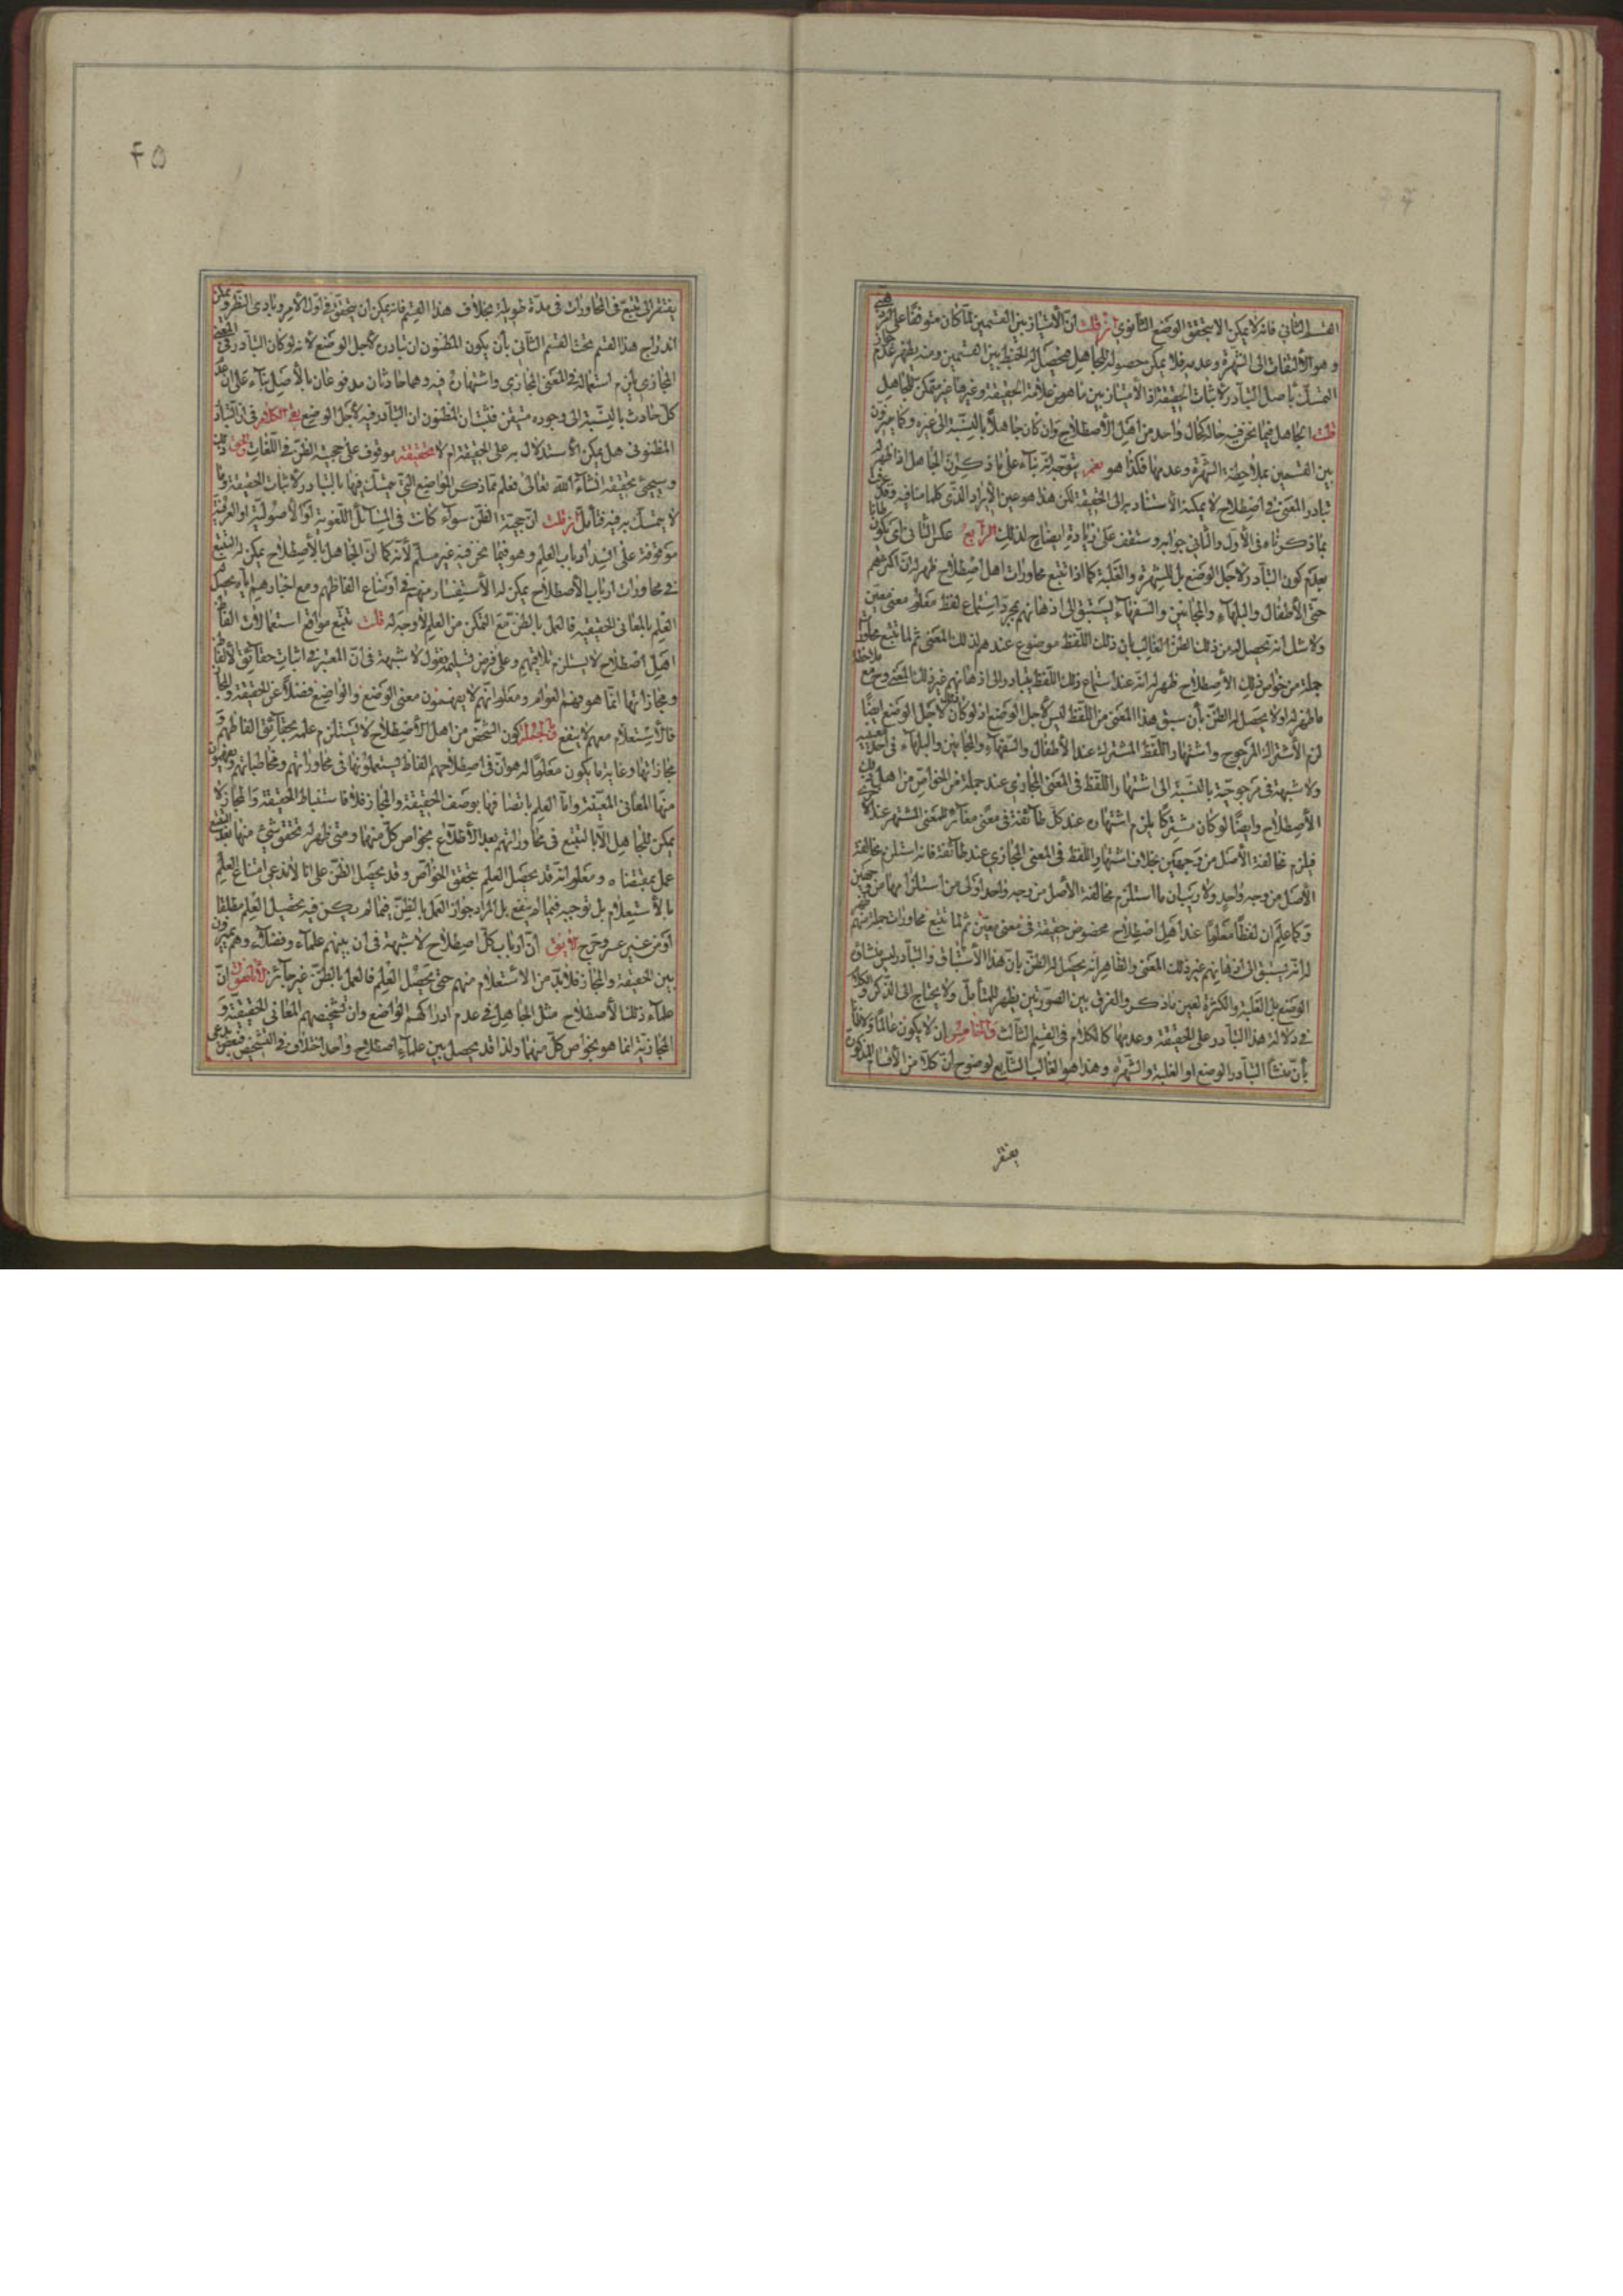 القسم الثاني فانه لا يمكن الا بتحقق الوضع الثانوي ان قلت ان الامتياز بين القسمين لما كان متوقفا على
وهو الالتفات الى الشهرة وعدمه فلا يمكن حصوله للجاهل فيحصل له الخبط بين القسمين ومنه يظهر عدم جواز
التمسك باصل التبادر لاثبات الحقيقة اذ الامتياز بين ما هو من علامة الحقيقة وغيرها غير متمكن للجاهل
قلت الجاهل فيما نحن فيه حاله كحال واحد من اهل الاصطلاح وان كان جاهلا بالنسبة الى غيره وكما يميزون
بين القسمين بملاحظة الشهرة وعدمها فكذا هو نعم يتوجه انه بناء على ما ذكرت الجاهل اذا ظهر له
تبادر المعنى في اصطلاح لا يمكنه الاستناد به الى الحقيقة لكن هذا هو عين الايراد الذي كلما منافيه وقد
بما ذكرناه في الاول والثاني جوابه وستقف على زيادة ايضاح لذلك الرابع عكس الثاني اعني يكون ظانا
بعدم كون التبادر لاجل الوضع بل للشهرة والغلبة كما اذا تتبع محاورات اهل اصطلاح ظهر له ان اكثرهم
حتى الاطفال والبلهاء والمجانين والسفهاء يستبق الى اذهانهم بمجرد استماع لفظ معلوم معنى معين
ولا شك انه تحصل له من ذلك الظن الغالب بان ذلك اللفظ موضوع عندهم لذلك المعنى ثم لما تتبع محاورات
جملة من خواص ذلك الاصطلاح ظهر له انه عند استماع ذلك اللفظ يتبادر الى اذهانهم غير ذلك المعنى وح مع ملاحظة
ما ظهر له اولا يحصل له الظن بان سبق هذا المعنى من اللفظ ليس لاجل الوضع اذ لو كان لاجل الوضع ايضا
لزم الاشتراك المرجوح واشتهار اللفظ المشترك عند الاطفال والسفهاء والمجانين والبلهاء في احد معنييه
ولا شبهة في مرجوحيته بالنسبة الى اشتهار اللفظ في المعنى المجازي عند جملة من الخواص من اهل ذلك
الاصطلاح وايضا لو كان مشتركا يلزم اشتهاره عند كل طائفة في معنى مغائر للمعنى المشتهر عند الاخرى
فيلزم مخالفة الاصل من وجهين بخلاف اشتهار اللفظ في المعنى المجازي عند طائفة فانه استلزم مخالفة
الاصل من وجه واحد ولا ريب ان ما استلزم مخالفة الاصل من وجه واحد اولى من استلزامها من وجهين
وكما علم ان لفظا معلوما عند اهل اصطلاح مخصوص حقيقة في معنى معين ثم لما تتبع محاورات جملة منهم ظهر
له انه يسبق الى اذهانهم غير ذلك المعنى والظاهر انه يحصل له الظن بان هذا الاستباق والتبادر ليس منشاؤه
الوضع بل الغلبة والكثرة لعين ما ذكر والفرق بين الصورتين يظهر للمتأمل ولا يحتاج الى الذكر والكلام
في دلالة هذا التبادر على الحقيقة وعدمها كالكلام في القسم الثالث والخامس ان لا يكون عالما ولا ظانا
بان منشأ التبادر الوضع او الغلبة والشهرة وهذا هو الغالب الشايع لوضوح ان كلا من الاقسام المذكورة
يفتقر
۴۵
يفتقر الى تتبع في المحاورات في مدة طويلة بخلاف هذا القسم فانه يمكن ان يتحقق في اول الامر وبادي النظر ويمكن
اندراج هذا القسم تحت القسم الثاني بان يكون المظنون ان تبادره لاجل الوضع لانه لو كان التبادر في المعنى
المجازي يلزم استعماله في المعنى المجازي واشتهاره فيه وهما حادثان مدفوعان بالاصل بناء على ان عدم
كل حادث بالنسبة الى وجوده متيقن فثبت ان المظنون ان التبادر فيه لاجل الوضع بقي الكلام في ان التبادر
المظنوني هل يمكن الاستدلال به على الحقيقة ام لا تحقيقه موقوف على حجية الظن في اللغات
وسيجيء تحقيقه انشاء الله تعالى فعلم مما ذكر المواضع التي يتمسك فيها بالتبادر لاثبات الحقيقة وما
لا يتمسك به فيه فتأمل ان قلت ان حجية الظن سواء كانت في المسائل اللغوية او الاصولية او الفرعية
موقوفة على انسداد باب العلم وهو فيما نحن فيه غير مسلم لانه كما ان الجاهل بالاصطلاح يمكن له التتبع
في محاورات ارباب الاصطلاح يمكن له الاستفسار منهم في اوضاع الفاظهم ومع اخبارهم اياه يحصل له
العلم بالمعاني الحقيقية فالعمل بالظن مع التمكن من العلم لا وجه له قلت تتبع مواقع استعمالات الفاظ
اهل اصطلاح لا يستلزم تلاقيهم وعلى فرض تسليمه نقول لا شبهة في ان المعتبر في اثبات حقائق الالفاظ
ومجازاتها انما هو فهم العوام ومعلوم انهم لا يفهمون معنى الوضع والواضع فضلا عن الحقيقة والمجاز
فالاستعلام معهم لا ينفع وبالجملة كون الشخص من اهل الاصطلاح لا يستلزم علمه بحقائق الفاظهم و
مجازاتها وغاية ما يكون معلوما له هو ان في اصطلاحهم الفاظا يستعملونها في محاوراتهم ومخاطباتهم ويفهمون
منها المعاني المعينة واما العلم باتصافها بوصف الحقيقة والمجاز فلا فاستنباط الحقيقة والمجاز لا
يمكن للجاهل الا بالتتبع في محاوراتهم بعد الاطلاع بخواص كل منهما ومتى ظهر له تحقق شيء منها بعد التتبع
عمل بمقتضاه ومعلوم انه قد يحصل العلم بتحقق الخواص وقد يحصل الظن على انا لا ندعي امتناع العلم
بالاستعلام بل نوجبه فيما لم ينفع بل المراد جواز العمل بالظن فيما لم يكن فيه تحصيل العلم مطلقا
او من غير عسر وحرج ان ارباب كل اصطلاح لا شبهة في ان بينهم علماء وفضلاء وهم يميزون
بين الحقيقة والمجاز فلا بد من الاستعلام منهم حتى يحصل العلم فالعمل بالظن غير جائز ان
علماء ذلك الاصطلاح مثل الجاهل في عدم ادراكهم الواضع وان تشخيصهم المعاني الحقيقية و
المجازية انما هو بخواص كل منهما ولذا قد يحصل بين علماء اصطلاح واحد اختلاف في التشخيص فبعض